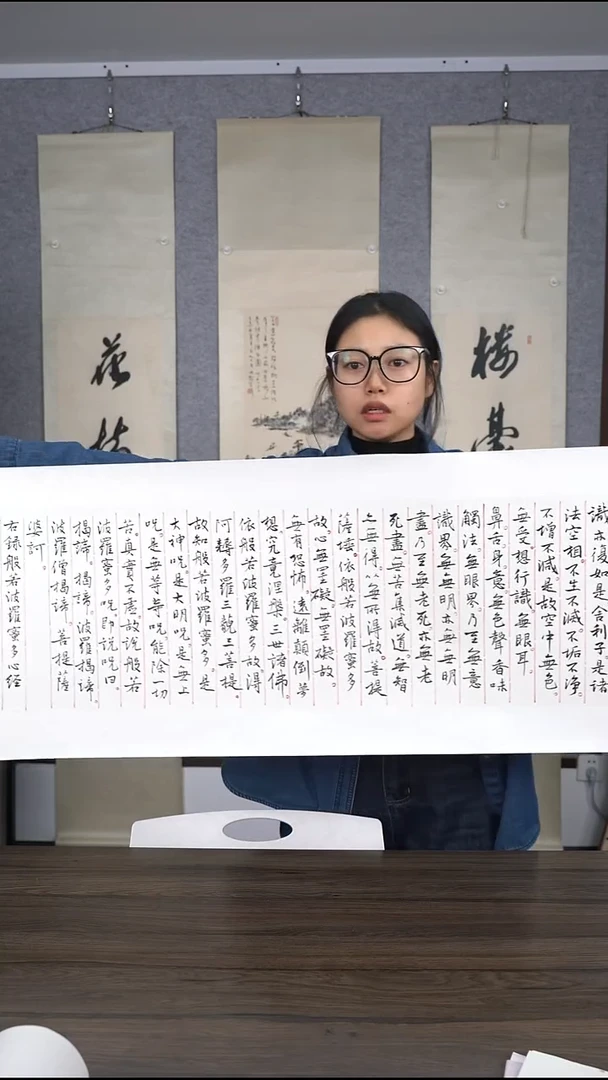 識亦復如是舍利子是諸
法空相不生不滅不垢不淨
不增不減是故空中無色
無受想行識無眼耳
鼻舌身意無色聲香味
觸法無眼界乃至無意
識界無無明亦無無明
盡乃至無老死亦無老
死盡無苦集滅道無智
亦無得以無所得故菩提
薩埵依般若波羅蜜多
故心無罣礙無罣礙故
無有恐怖遠離顛倒夢
想究竟涅槃三世諸佛
依般若波羅蜜多故得
阿耨多羅三藐三菩提
故知般若波羅蜜多是
大神咒是大明咒是無上
咒是無等等咒能除一切
苦真實不虛故說般若
波羅蜜多咒即說咒曰
揭諦揭諦波羅揭諦
波羅僧揭諦菩提薩
婆訶
右録般若波羅蜜多心經
楼臺
花枝